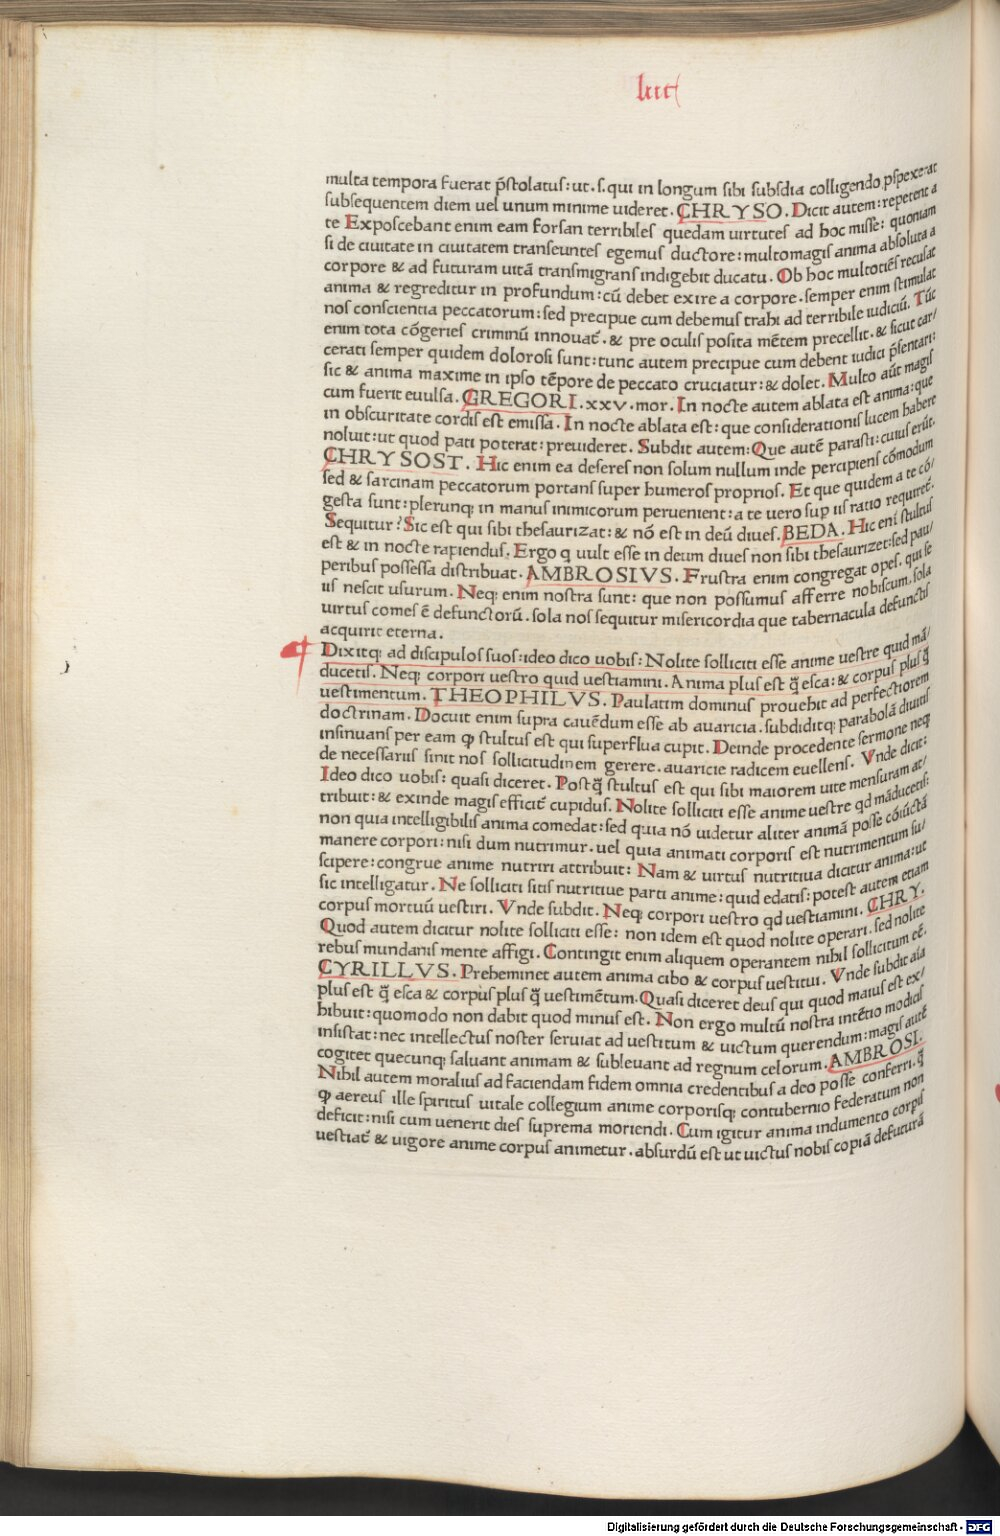 multa tempora fuerat p̃stolatus: ut .s. qui in longum sibi subsdia colligendo pspexerat
subsequentem diem uel unum minime uideret. CHRYSO. Dicit autem: repetent a
te Exposcebant enim eam forsan terribiles quedam uirtutes ad hoc misse: quoniam
si de ciuitate in ciuitatem transeuntes egemus ductore: multomagis anima absoluta a
corpore & ad futuram uitã transmigrans indigebit ducatu. Ob hoc multotiẽs recusat
anima & regreditur in profundum: cũ debet exire a corpore. semper enim stimulat
nos conscientia peccatorum: sed precipue cum debemus trahi ad terribile iudiciũ. Tũc
enim tota cõgeries criminũ innouat̃. & pre oculis posita mẽtem precellit. & sicut car/
cerati semper quidem dolorosi sunt: tunc autem precipue cum debent iudici p̃sentari:
sic & anima maxime in ipso tẽpore de peccato cruciatur: & dolet. Multo aũt magis
cum fuerit euulsa. GREGORI. xxv. mor. In nocte autem ablata est anima: que
in obscuritate cordis est emissa. In nocte ablata est: que considerationis lucem habere
noluit: ut quod pati poterat: preuideret. Subdit autem: Que autẽ parasti: cuius erũt.
CHRYSOST. Hic enim ea deseres non solum nullum inde percipiens cõmodum
sed & sarcinam peccatorum portans super humeros proprios. Et que quidem a te cõ/
gesta sunt: plerunq; in manus inimicorum peruenient: a te uero sup iis ratio requiret̃.
Sequitur? Sic est qui sibi thesaurizat: & nõ est in deũ diues. BEDA. Hic enĩ stultus
est & in nocte rapiendus. Ergo q uult esse in deum diues non sibi thesaurizet: sed pau/
peribus possessa distribuat. AMBROSIVS. Frustra enim congregat opes. qui se
iis nescit usurum. Neq; enim nostra sunt: que non possumus afferre nobiscum. sola
uirtus comes ẽ defunctorũ. sola nos sequitur misericordia que tabernacula defunctis
acquirit eterna.
Dixitq; ad discipulos suos: ideo dico uobis: Nolite solliciti esse anime uestre quid mã/
ducetis. Neq; corpori uestro quid uestiamini. Anima plus est q̃ esca: & corpus plus q̃
uestimentum. THEOPHILVS. Paulatim dominus prouehit ad perfectiorem
doctrinam. Docuit enim supra cauẽdum esse ab auaricia. subdiditq; parabolã diuitis
insinuans per eam ꝙ stultus est qui superflua cupit. Deinde procedente sermone neq;
de necessariis sinit nos sollicitudinem gerere. auaricie radicem euellens. Vnde dicit:
Ideo dico uobis: quasi diceret. Postq̃ stultus est qui sibi maiorem uite mensuram at/
tribuit: & exinde magis efficit̃ cupidus. Nolite solliciti esse anime uestre qd mãducetis:
non quia intelligibilis anima comedat: sed quia nõ uidetur aliter animã posse cõiũctã
manere corpori: nisi dum nutrimur. uel quia animati corporis est nutrimentum su/
scipere: congrue anime nutriri attribuit: Nam & uirtus nutritiua dicitur anima: ut
sic intelligatur. Ne solliciti sitis nutritiue parti anime: quid edatis: potest autem etiam
corpus mortuũ uestiri. Vnde subdit. Neq; corpori uestro qd uestiamini. CHRY.
Quod autem dicitur nolite solliciti esse: non idem est quod nolite operari. sed nolite
rebus mundanis mente affigi. Contingit enim aliquem operantem nihil sollicitum eẽ.
CYRILLVS. Preheminet autem anima cibo & corpus uestitui. Vnde subdit aĩa
plus est q̃ esca & corpus plus q̃ uestimẽtum. Quasi diceret deus qui quod maius est ex/
hibuit: quomodo non dabit quod minus est. Non ergo multũ nostra intẽtio modicis
insistat: nec intellectus noster seruiat ad uestitum & uictum querendum: magis autẽ
cogitet quecunq; saluant animam & subleuant ad regnum celorum. AMBROSI.
Nihil autem moralius ad faciendam fidem omnia credentibus a deo posse conferri. q̃
ꝙ aereus ille spiritus uitale collegium anime corporisq; contubernio federatum non
deficit: nisi cum uenerit dies suprema moriendi. Cum igitur anima indumento corpis
uestiat̃ & uigore anime corpus animetur. absurdũ est ut uictus nobis copiã defuturã
Digitalisierung gefördert durch die Deutsche Forschungsgemeinschaft - DFG